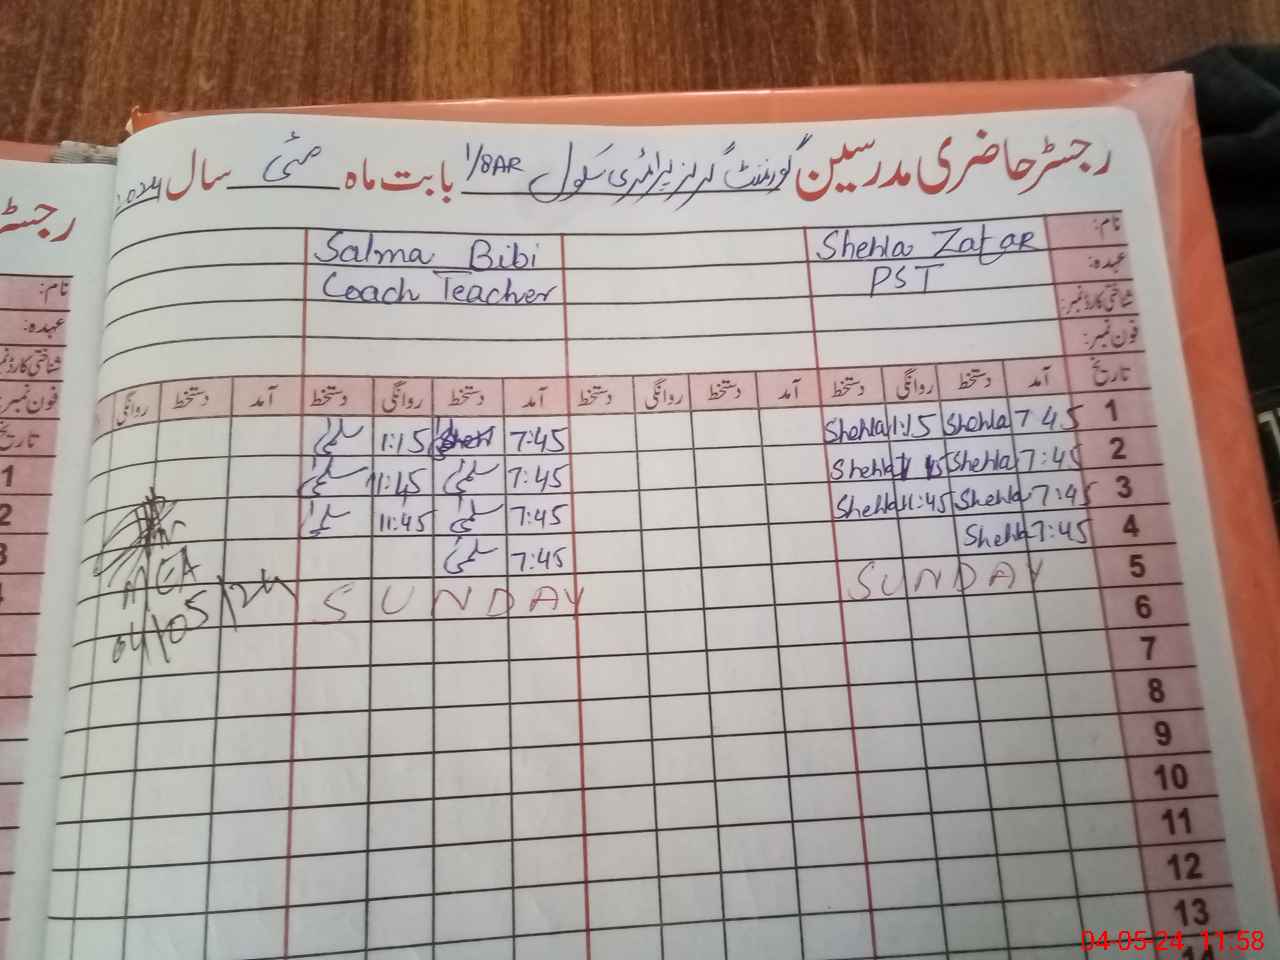 رجسٹر حاضری مدرسین گورنمنٹ گرلز پرائمری سکول 1/8AR بابت ماہ مئی سال 2024
نام: Shehla Zafar Salma Bibi
عہدہ: PST Coach Teacher
شناختی کارڈ نمبر:
فون نمبر:
تاریخ آمد دستخط روانگی دستخط آمد دستخط روانگی دستخط آمد دستخط روانگی دستخط آمد دستخط روانگی
1 7:45 Shehla 1:15 Shehla 7:45 1:15 سلمیٰ
2 7:45 Shehla Shehla 7:45 سلمیٰ 11:45 سلمیٰ
3 7:45 Shehla 11:45 Shehla 7:45 سلمیٰ 11:45 سلمیٰ
4 7:45 Shehla 7:45 سلمیٰ
5 SUNDAY SUNDAY
MEA
04/05/24
6
7
8
9
10
11
12
13
14
رجسٹر
نام:
عہدہ:
شناختی کارڈ نمبر
فون نمبر:
تاریخ
1
2
3
04-05-24 11:58